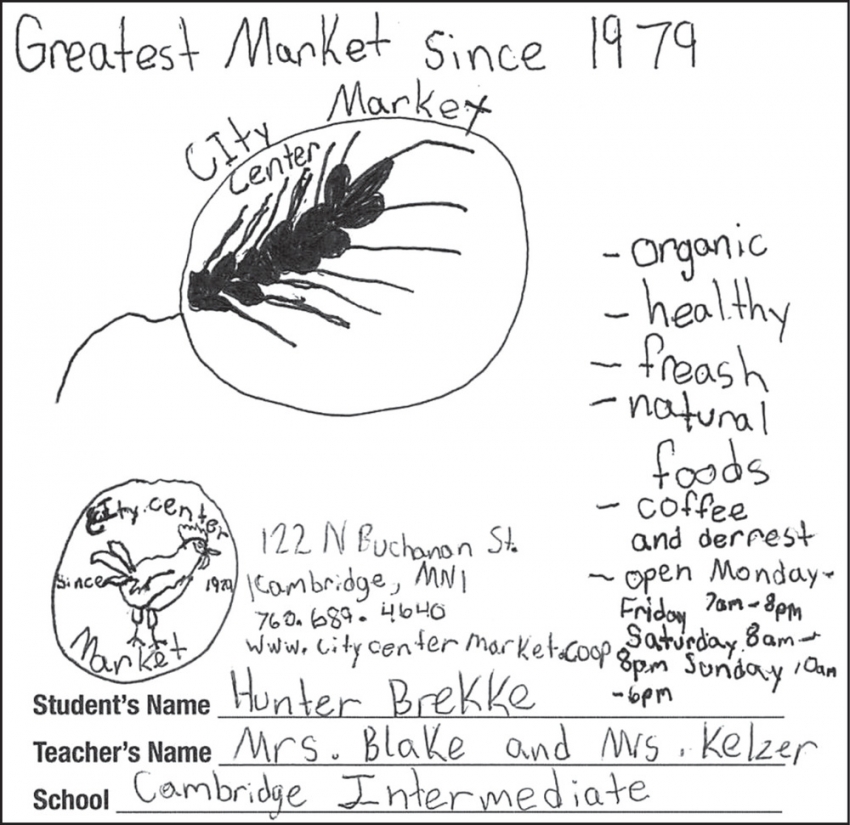 Greatest Market Since 1979
City Center Market
- organic
- healthy
- freash
- natural
foods
- coffee
and derrest
- open Monday-
Friday 7am-8pm
Saturday 8am-
8pm Sunday 10am
-6pm
City center
Since 1979
Market
122 N Buchanan St.
Cambridge, MN
763.689.4640
www.citycentermarket.coop
Student's Name Hunter Brekke
Teacher's Name Mrs. Blake and Mrs. Kelzer
School Cambridge Intermediate